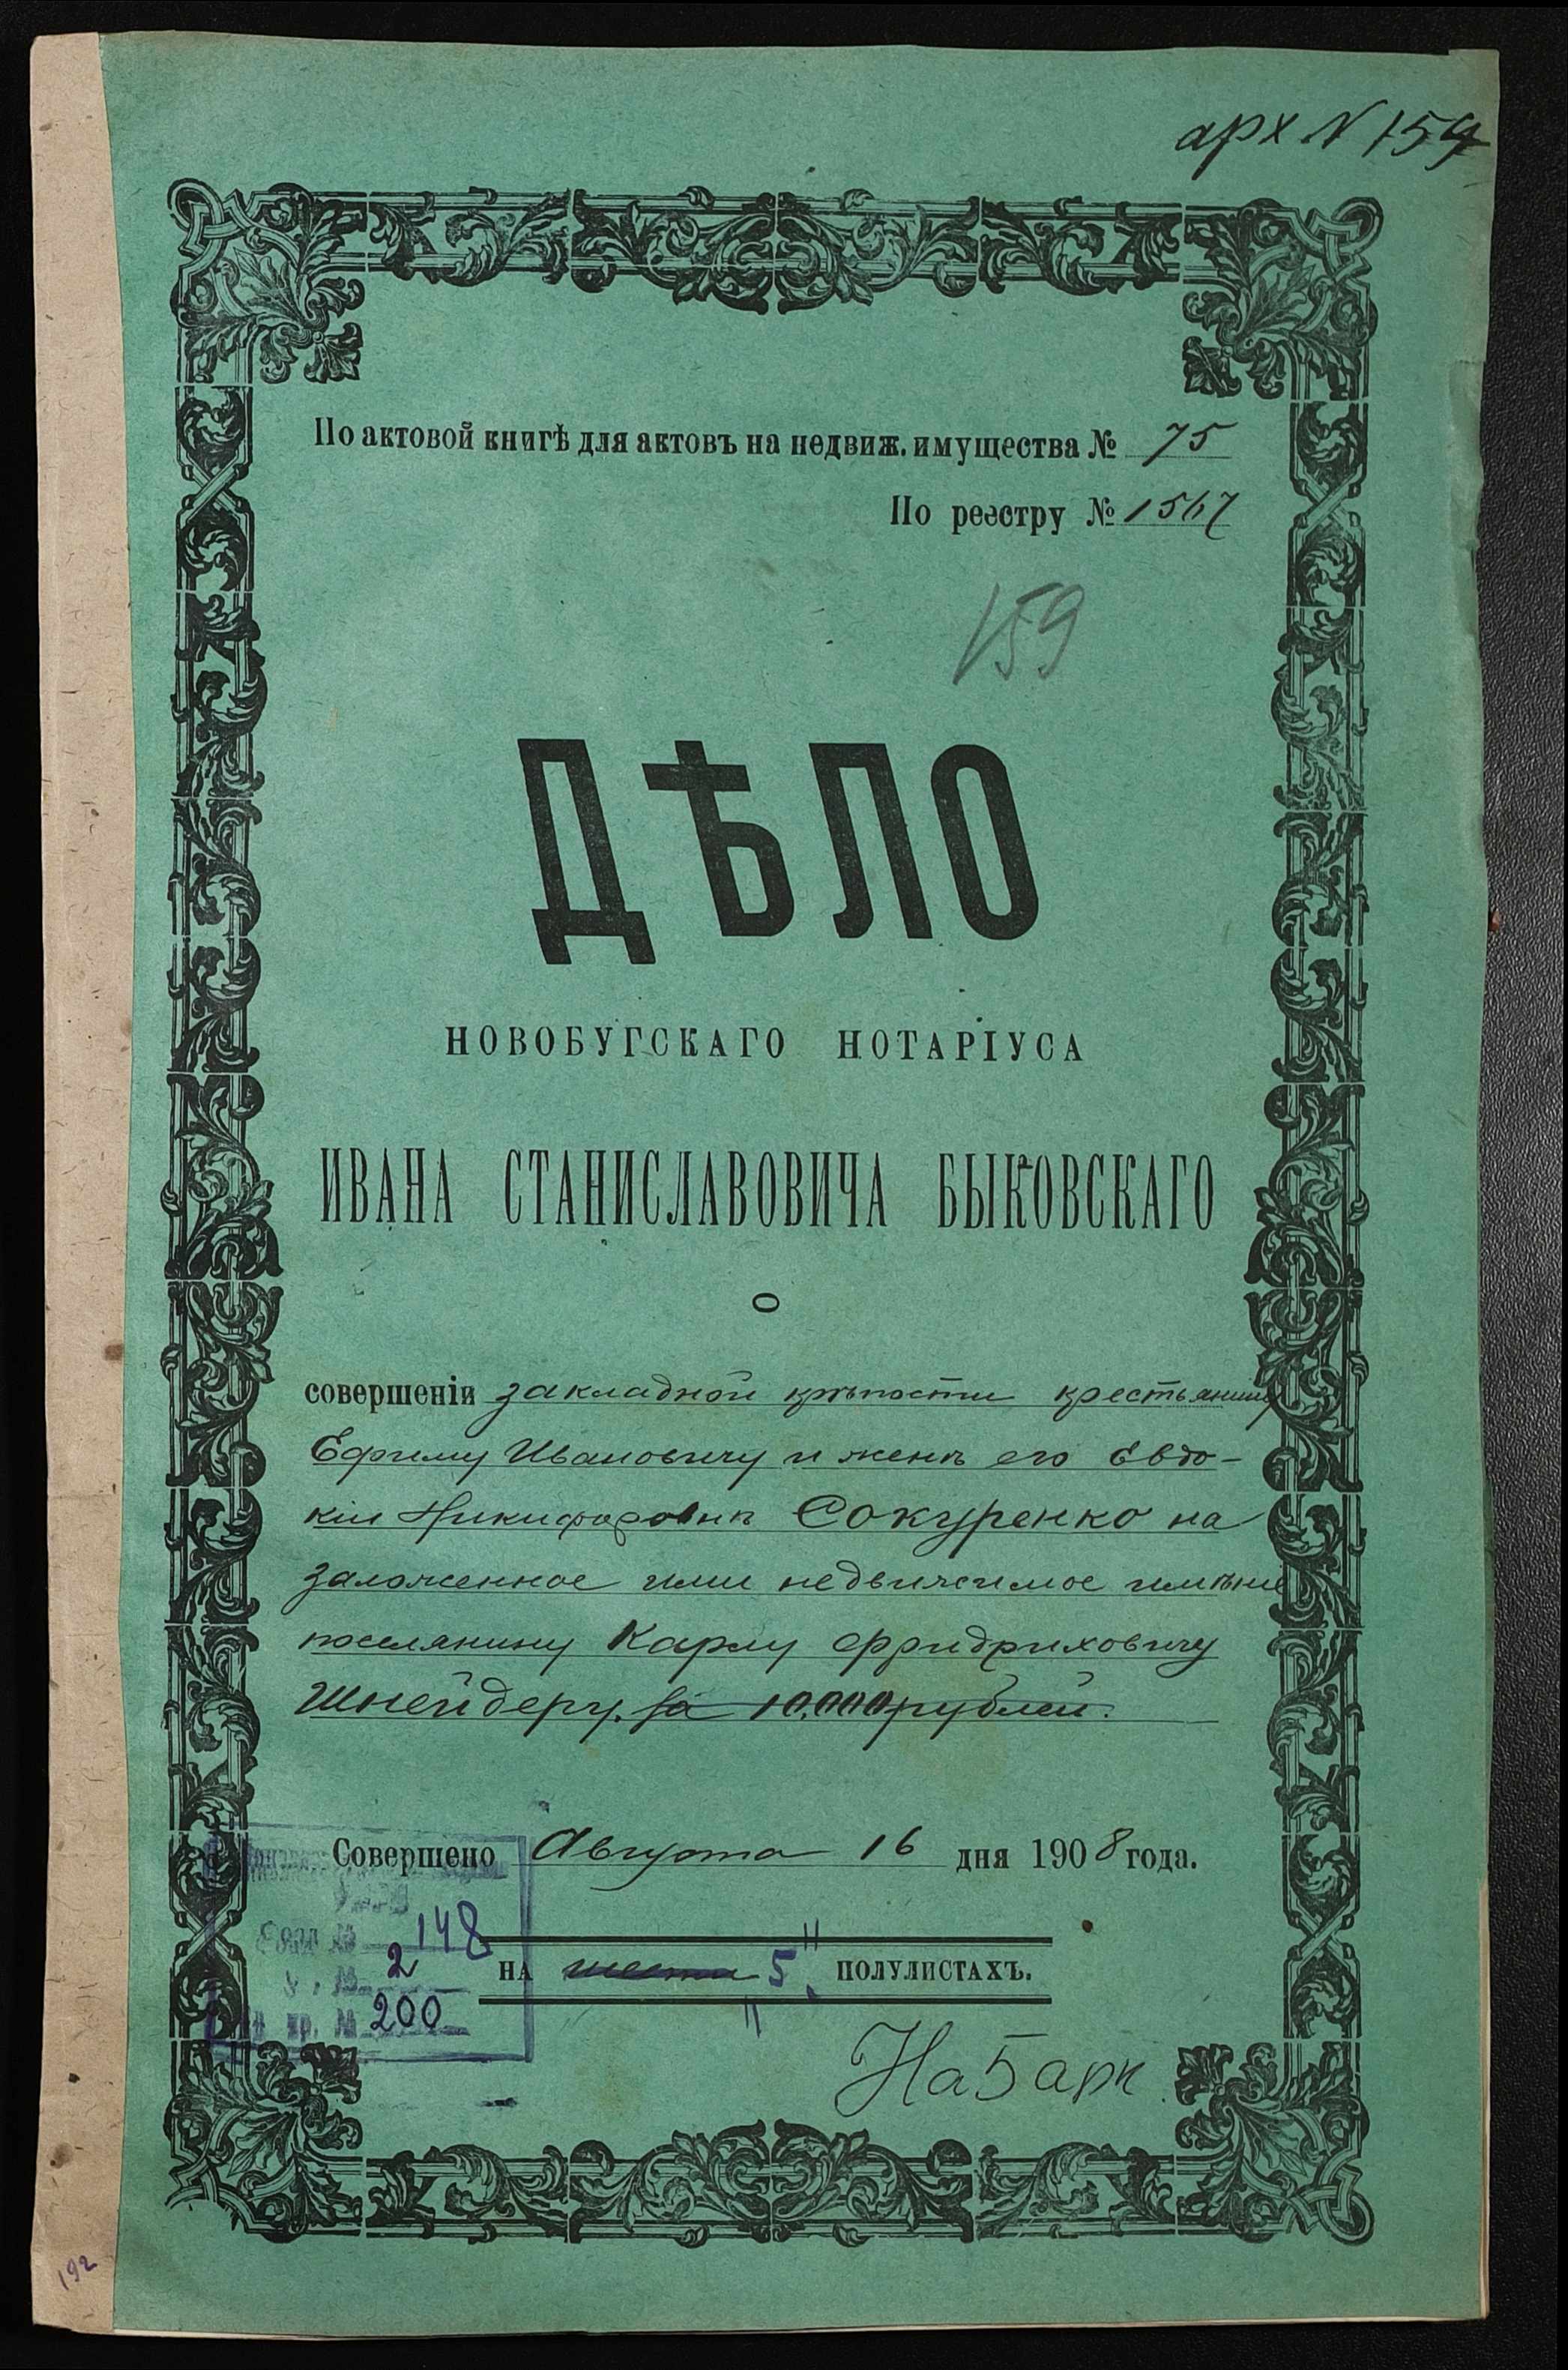 арх N 159
По актовой книгѣ для актовъ на недвиж. имущества № 75
По реестру № 1567
159
ДѢЛО
НОВОБУГСКАГО НОТАРІУСА
ИВАНА СТАНИСЛАВОВИЧА БЫКОВСКАГО
О
совершеніи закладной крѣпости крестьянину
Ефиму Ивановичу и женѣ его Евдо-
кіи Никифоровнѣ Сокуренко на
заложенное ими недвижимое имѣніе
поселянину Карлу Фридриховичу
Шнейдеру. за 10.000 рублей.
Совершено Августа 16 дня 1908 года.
148
2
НА шести 5 ПОЛУЛИСТАХЪ.
200
192